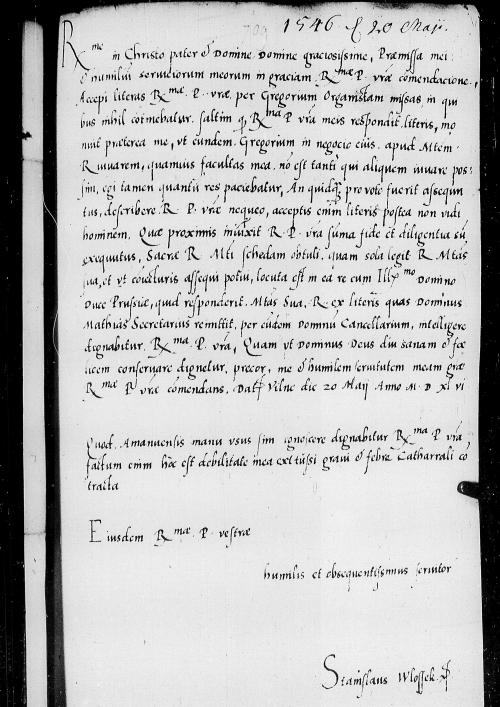 1546 20 Maij.
Rme in Christo pater et Domine Domine graciosissime, Præmissa mei
et humiliū seruiciorum meorum in graciam Rmæ P. vræ comendacione,
Accepi literas Rmæ P. vræ, per Gregorium Organistam missas in qui
bus nihil cotinebatur. saltim q Rma P vra meis respondit literis, mo
nuit præterea me, vt eundem Gregorium in negocio eius, apud Mtem
R iuuarem, quamuis facultas mea nō est tanti qui aliquem iuuare pos-
sim, egi tamen quantū res paciebatur, An quidq pro voto fuerit assequu
tus, describere R P. vræ nequeo, acceptis enim literis postea non vidi
hominem. Quæ proximis iniūxit R P. vra suma fide et diligentia sū
exequutus, Sacræ R. Mti schedam obtuli, quam sola legit R. Mtas
sua, et vt coniecturis assequi potui, locuta est in ea re cum Illmo Domino
Duce Prussiæ, quid responderit Mtas Sua. R. ex literis quas Dominus
Mathias Secretarius remittit, per eūdem Domnū Cancellarium, intelligere
dignabitur Rma. P. vra, Quam vt Domnus Deus diu sanam et fæ
licem conseruare dignetur, precor, me et humilem seruitutem meam græ
Rmæ P vræ comendans, Dat Vilne die 20 Maij Anno M. D xl vi
Quod Amanuensis manu vsus sim ignoscere dignabitur Rma P vra
factum enim hoc est debilitate mea ex tussi graui et febre Catharrali cō
tracta
Eiusdem Rmæ. P. vestræ
humilis et obsequentissimus seruitor
Stanislaus Wlossek